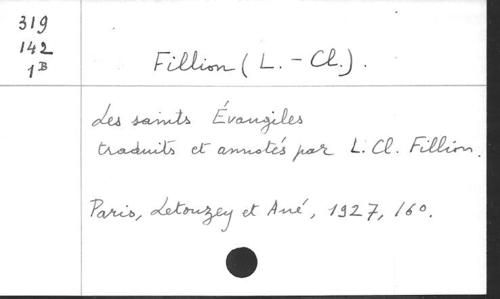 319
142
1B
Fillion (L.-Cl.).
Les saints Évangiles
traduits et annotés par L. Cl. Fillion.
Paris, Letouzey et Ané, 1927, 16º.